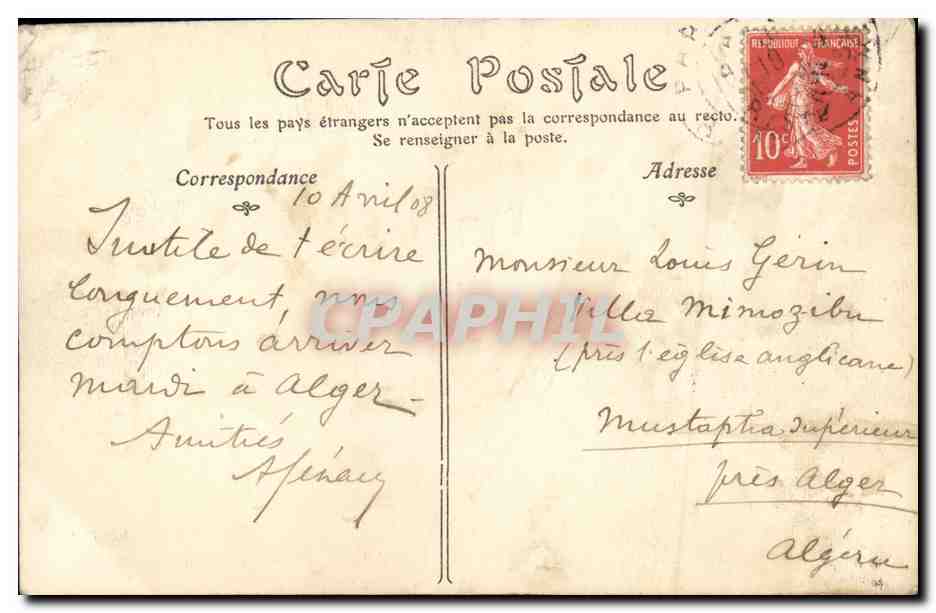 Carte Postale
Tous les pays étrangers n'acceptent pas la correspondance au recto.
Se renseigner à la poste.
Correspondance
10 Avril 08
Inutile de t'écrire
longuement, nous
comptons arriver
mardi à Alger
Amitiés
Adresse
Monsieur Louis Gérin
Villa Mimozibu
(près l'église anglicane)
Mustapha Supérieur
près Alger
Algérie
REPUBLIQUE FRANÇAISE
10c
POSTES
CPAPHIL